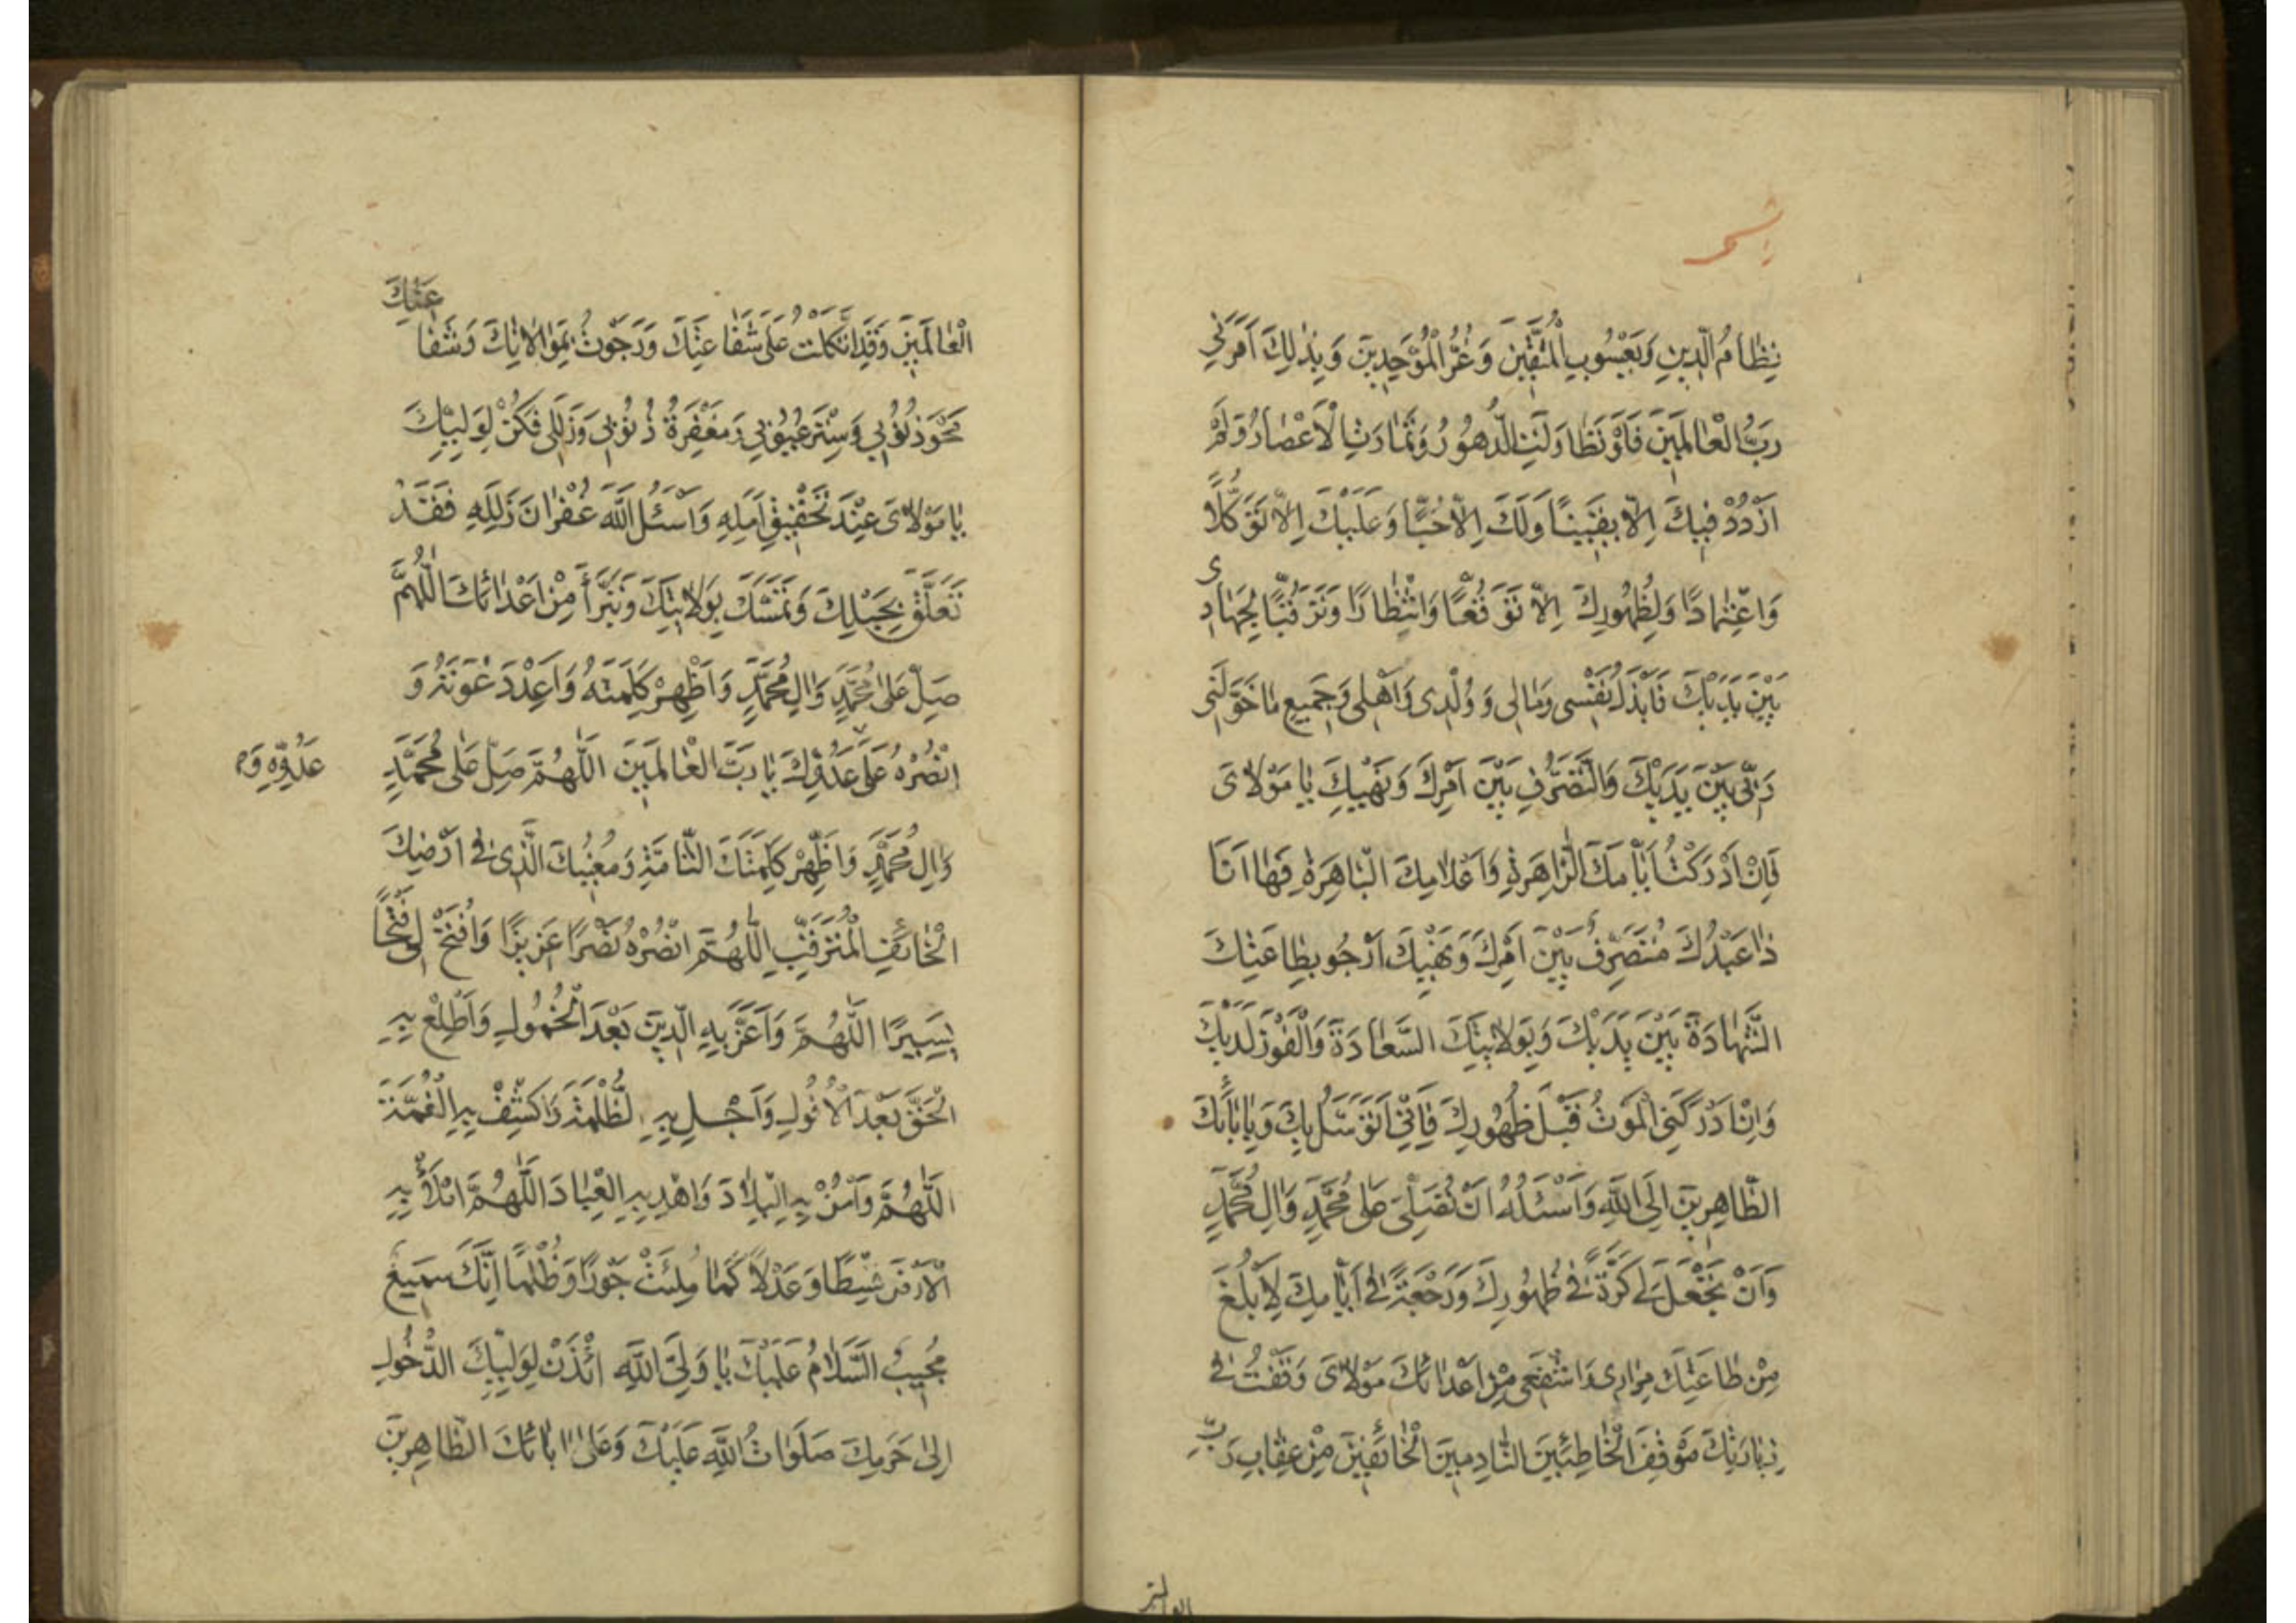 نِظَامُ الدِّينِ وَيَعْسُوبِ الْمُتَّقِينَ وَعُزُّ الْمُوَحِّدِينَ وَبِذٰلِكَ اَمَرَنِي
رَبُّ الْعَالَمِينَ فَلَوْ تَطَاوَلَتِ الدُّهُورُ وَتَمَادَتِ الْاَعْصَارُ لَمْ
اَزْدَدْ فِيكَ اِلَّا يَقِينًا وَلَكَ اِلَّا حُبًّا وَعَلَيْكَ اِلَّا تَوَكُّلًا
وَاعْتِمَادًا وَلِظُهُورِكَ اِلَّا تَوَقُّعًا وَانْتِظَارًا وَتَرَقُّبًا لِجِهَادِى
بَيْنَ يَدَيْكَ فَاَبْذُلُ نَفْسِى وَمَالِى وَوُلْدِى وَاَهْلِى وَجَمِيعَ مَا خَوَّلَنِى
رَبِّى بَيْنَ يَدَيْكَ وَالتَّصَرُّفِ بَيْنَ اَمْرِكَ وَنَهْيِكَ يَا مَوْلَاىَ
فَاِنْ اَدْرَكْتُ اَيَّامَكَ الزَّاهِرَةِ وَاَعْلَامِكَ الْبَاهِرَةِ فَهَا اَنَا
ذَا عَبْدُكَ مُتَصَرِّفٌ بَيْنَ اَمْرِكَ وَنَهْيِكَ اَرْجُو بِطَاعَتِكَ
الشَّهَادَةَ بَيْنَ يَدَيْكَ وَبِوَلَايَتِكَ السَّعَادَةَ وَالْفَوْزَ لَدَيْكَ
وَاِنْ اَدْرَكَنِى الْمَوْتُ قَبْلَ ظُهُورِكَ فَاِنِّى اَتَوَسَّلُ بِكَ وَبِاٰبَائِكَ
الطَّاهِرِينَ اِلَى اللّٰهِ وَاَسْئَلُهُ اَنْ يُصَلِّىَ عَلٰى مُحَمَّدٍ وَاٰلِ مُحَمَّدٍ
وَاَنْ يَجْعَلَ لِى كَرَّةً فِى ظُهُورِكَ وَرَجْعَةً فِى اَيَّامِكَ لِاَبْلُغَ
مِنْ طَاعَتِكَ مُرَادِى وَاشْفَعِى مِنْ اَعْدَائِكَ مَوْلَاىَ وَقَفْتُ فِى
زِيَارَتِكَ مَوْقِفَ الْخَاطِئِينَ النَّادِمِينَ الْخَائِفِينَ مِنْ عِقَابِ رَبِّ
الْعَالَمِينَ وَقَدِ اتَّكَلْتُ عَلٰى شَفَاعَتِكَ وَرَجَوْتُ بِمُوَالَاتِكَ وَشَفَا
عَتِكَ
مَحْوَ ذُنُوبِى وَسِتْرَ عُيُوبِى وَمَغْفِرَةَ ذُنُوبِى وَزَلَلِى فَكُنْ لِوَلِيِّكَ
يَا مَوْلَاىَ عِنْدَ تَحْقِيقِ اَمَلِهِ وَاَسْئَلُ اللّٰهَ غُفْرَانَ زَلَلِهِ فَقَدْ
تَعَلَّقَ بِحَبْلِكَ وَتَمَسَّكَ بِوَلَايَتِكَ وَتَبَرَّأَ مِنْ اَعْدَائِكَ اللّٰهُمَّ
صَلِّ عَلٰى مُحَمَّدٍ وَاٰلِ مُحَمَّدٍ وَاَظْهِرْ كَلِمَتَهُ وَاَعْدِدْ عَوْنَهُ وَ
انْصُرْهُ عَلٰى عَدُوِّكَ يَا رَبَّ الْعَالَمِينَ اَللّٰهُمَّ صَلِّ عَلٰى مُحَمَّدٍ
عَدُوِّهِ وَ
وَاٰلِ مُحَمَّدٍ وَاَظْهِرْ كَلِمَتَكَ التَّامَّةِ وَمُغِيبُكَ الَّذِى فِى اَرْضِكَ
الْخَائِفِ الْمُتَرَقِّبِ اللّٰهُمَّ انْصُرْهُ نَصْرًا عَزِيزًا وَافْتَحْ لِى فَتْحًا
يَسِيرًا اللّٰهُمَّ وَاَعِزَّ بِهِ الدِّينَ بَعْدَ الْخُمُولِ وَاَطْلِعْ بِهِ
الْحَقَّ بَعْدَ الْاُفُولِ وَاَجْلِ بِهِ لظُّلْمَةَ وَاكْشِفْ بِهِ الْغُمَّةَ
اَللّٰهُمَّ وَاٰمِنْ بِهِ الْبِلَادَ وَاهْدِ بِهِ الْعِبَادَ اَللّٰهُمَّ امْلَأْ بِهِ
الْاَرْضَ قِسْطًا وَعَدْلًا كَمَا مُلِئَتْ جَوْرًا وَظُلْمًا اِنَّكَ سَمِيعٌ
مُجِيبٌ السَّلَامُ عَلَيْكَ يَا وَلِىَّ اللّٰهِ ائْذَنْ لِوَلِيِّكَ الدُّخُولَ
اِلٰى حَرَمِكَ صَلَوَاتُ اللّٰهِ عَلَيْكَ وَعَلٰى اٰبَائِكَ الطَّاهِرِينَ